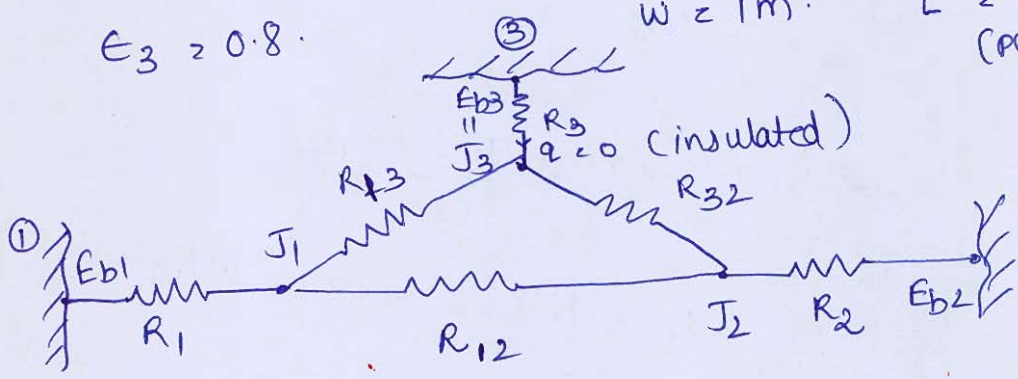 W = 1m. L =
ϵ3 = 0.8.
③
(p
Eb3
||
J3
R3
q = 0 (insulated)
R13
R32
①
Eb1
J1
R1
R12
J2
R2
Eb2